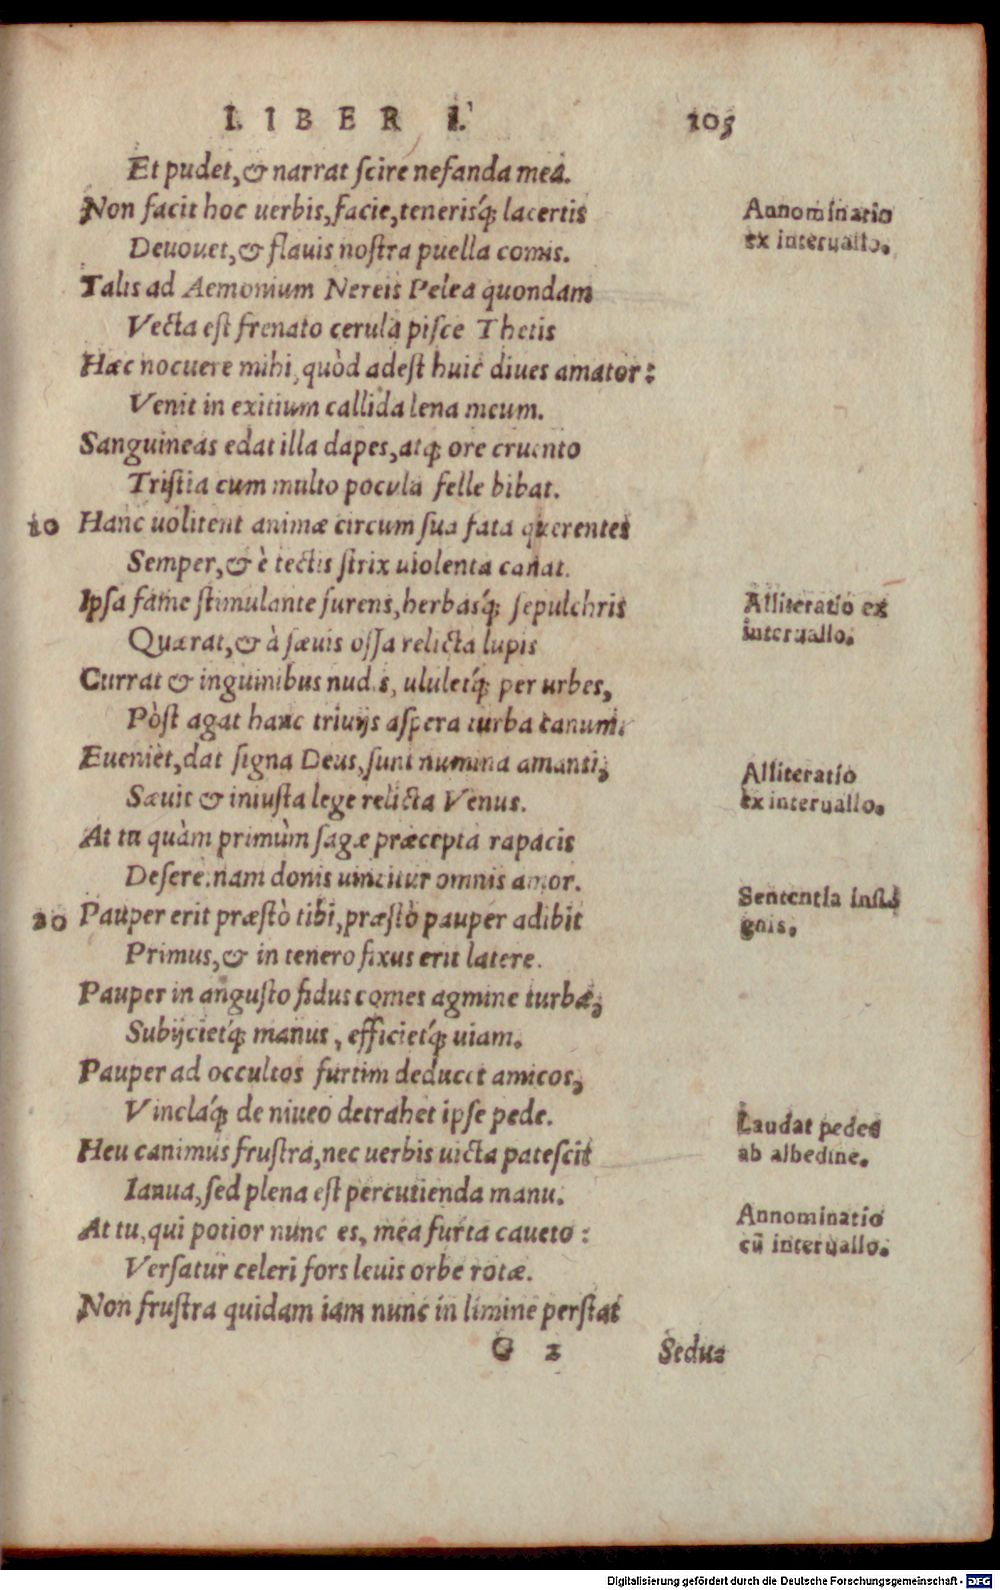 LIBER I. 105
Et pudet, & narrat scire nefanda mea.
Non facit hoc uerbis, facie, tenerisq́; lacertis
Deuouet, & flauis nostra puella comis.
Talis ad Aemonium Nereis Pelea quondam
Vecta est frenato cerula pisce Thetis
Hæc nocuere mihi, quòd adest huic diues amator:
Venit in exitium callida lena meum.
Sanguineas edat illa dapes, atq; ore cruento
Tristia cum multo pocula felle bibat.
10 Hanc uolitent animæ circum sua fata querentes
Semper, & è tectis strix uiolenta canat.
Ipsa fame stimulante furens, herbasq́; sepulchris
Quærat, & à sæuis ossa relicta lupis
Currat & inguinibus nudis, ululetq́; per urbes,
Pòst agat hanc triuijs aspera turba canum.
Eueniet, dat signa Deus, sunt numina amanti,
Sæuit & iniusta lege relicta Venus.
At tu quàm primùm sagæ præcepta rapacis
Desere. nam donis uincitur omnis amor.
20 Pauper erit præstò tibi, præstò pauper adibit
Primus, & in tenero fixus erit latere.
Pauper in angusto fidus comes agmine turbæ,
Subijcietq́; manus, efficietq́; uiam.
Pauper ad occultos furtim deducet amicos,
Vinclaq́; de niueo detrahet ipse pede.
Heu canimus frustra, nec uerbis uicta patescit
Ianua, sed plena est percutienda manu.
At tu, qui potior nunc es, mea furta caueto:
Versatur celeri fors leuis orbe rotæ.
Non frustra quidam iam nunc in limine perstat
G 2 Sedu-
Annominatio
ex interuallo.
Alliteratio ex
interuallo.
Alliteratio
ex interuallo.
Sententia insi-
gnis.
Laudat pedes
ab albedine.
Annominatio
cū interuallo.
Digitalisierung gefördert durch die Deutsche Forschungsgemeinschaft - DFG